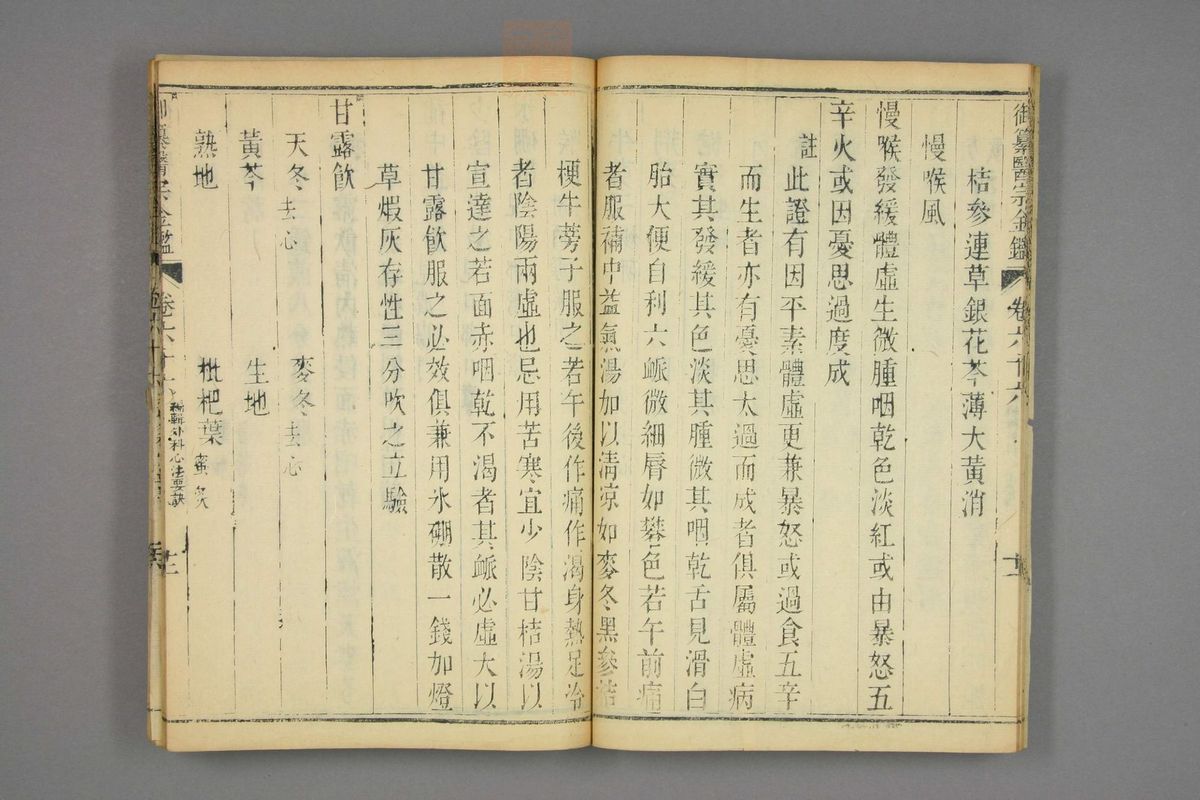 御纂醫宗金鑑 卷六十六
桔參連草銀花芩薄大黃消
慢喉風
慢喉發緩體虛生微腫咽乾色淡紅或由暴怒五
辛火或因憂思過度成
註此證有因平素體虛更兼暴怒或過食五辛
而生者亦有憂思太過而成者俱屬體虛病
實其發緩其色淡其腫微其咽乾舌見滑白
胎大便自利六衇微細唇如礬色若午前痛
者服補中益氣湯加以清涼如麥冬黑參桔
梗牛蒡子服之若午後作痛作渴身熱足冷
者陰陽兩虛也忌用苦寒宜少陰甘桔湯以
宣達之若面赤咽乾不渴者其衇必虛大以
甘露飲服之必效俱兼用氷硼散一錢加燈
草煆灰存性三分吹之立驗
甘露飲
天冬去心 麥冬去心
黃芩 生地
熟地 枇杷葉蜜炙
醫宗金鑑 卷六十六 編輯外科心法要訣